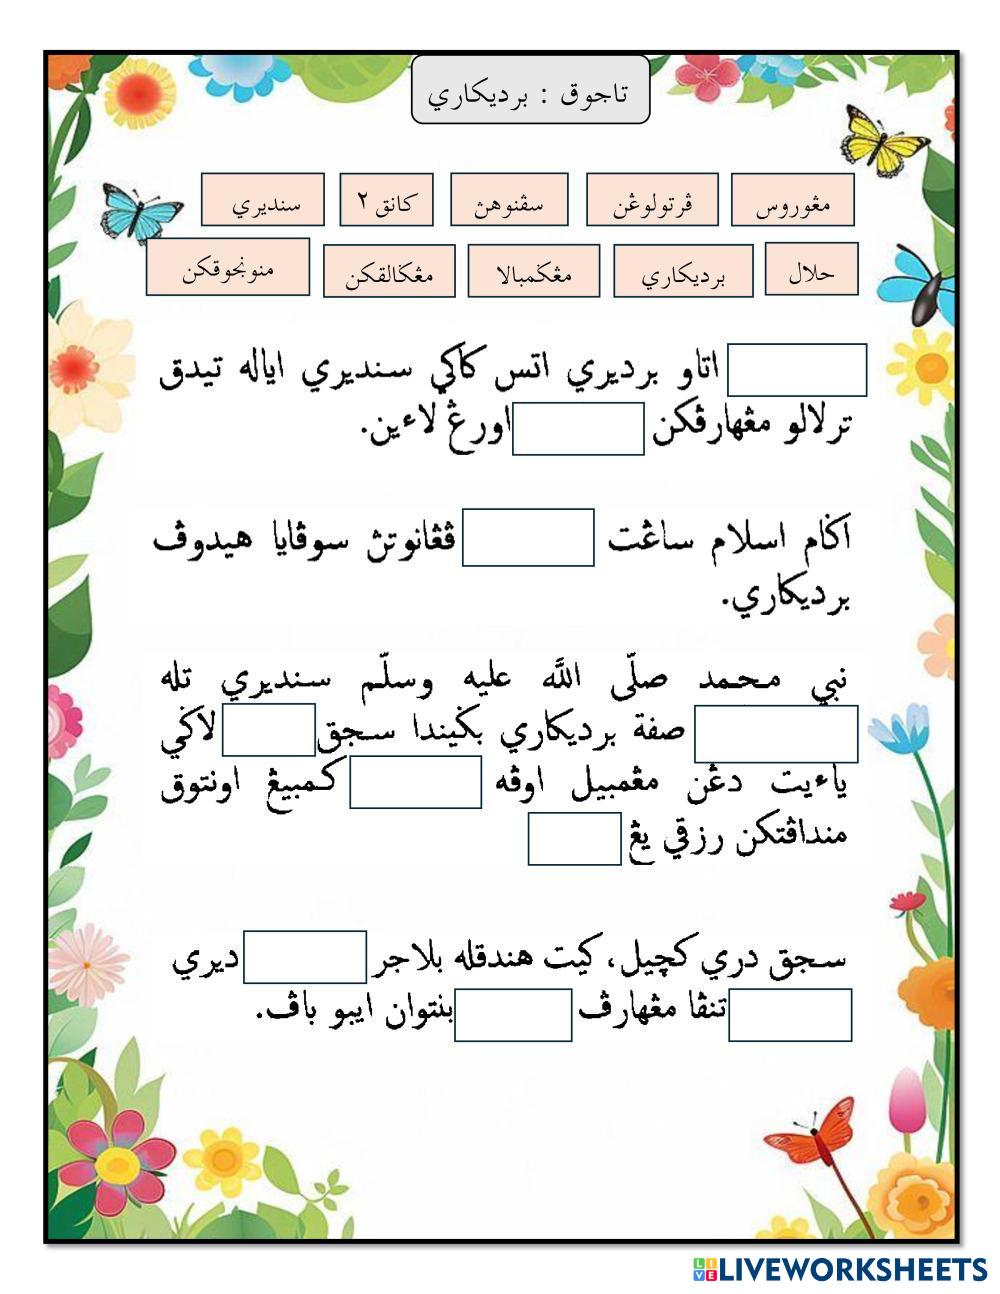 تاجوق : برديكاري
مڠوروس ڤرتولوڠن سڤنوهڽ كانق ٢ سنديري
حلال برديكاري مڠكمبالا مڠݢالقكن منونجوقكن
اتاو برديري اتس كاكي سنديري اياله تيدق
ترلالو مڠهارڤكن اورڠ لاءين.
اݢام اسلام ساڠت ڤڠانوتڽ سوڤايا هيدوڤ
برديكاري.
نبي محمد صلّى اللّٰه عليه وسلّم سنديري تله
صفة برديكاري بݢيندا سجق لاݢي
ياءيت دڠن مڠمبيل اوڤه كمبيڠ اونتوق
منداڤتكن رزقي يڠ
سجق دري كچيل، كيت هندقله بلاجر ديري
تنڤا مڠهارڤ بنتوان ايبو باڤ.
LIVEWORKSHEETS